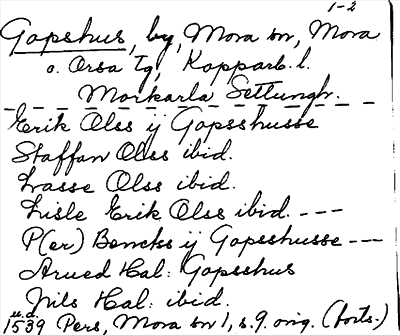 1-2
Gopshus, by, Mora sn, Mora
o. Orsa tg, Kopparb. l.
Morkarla Settungh.
Erik Olss ij Gopsshusse
Staffan Olss ibid.
Lasse Olss ibid.
Lisle Erik Olss ibid. ---
P(er) Bencks ij Gopsshusse ---
Arued Hal: Gopsshus
Nils Hal: ibid.
u.d.
1539 Pers, Mora sn 1, s. 9 orig. (forts.)